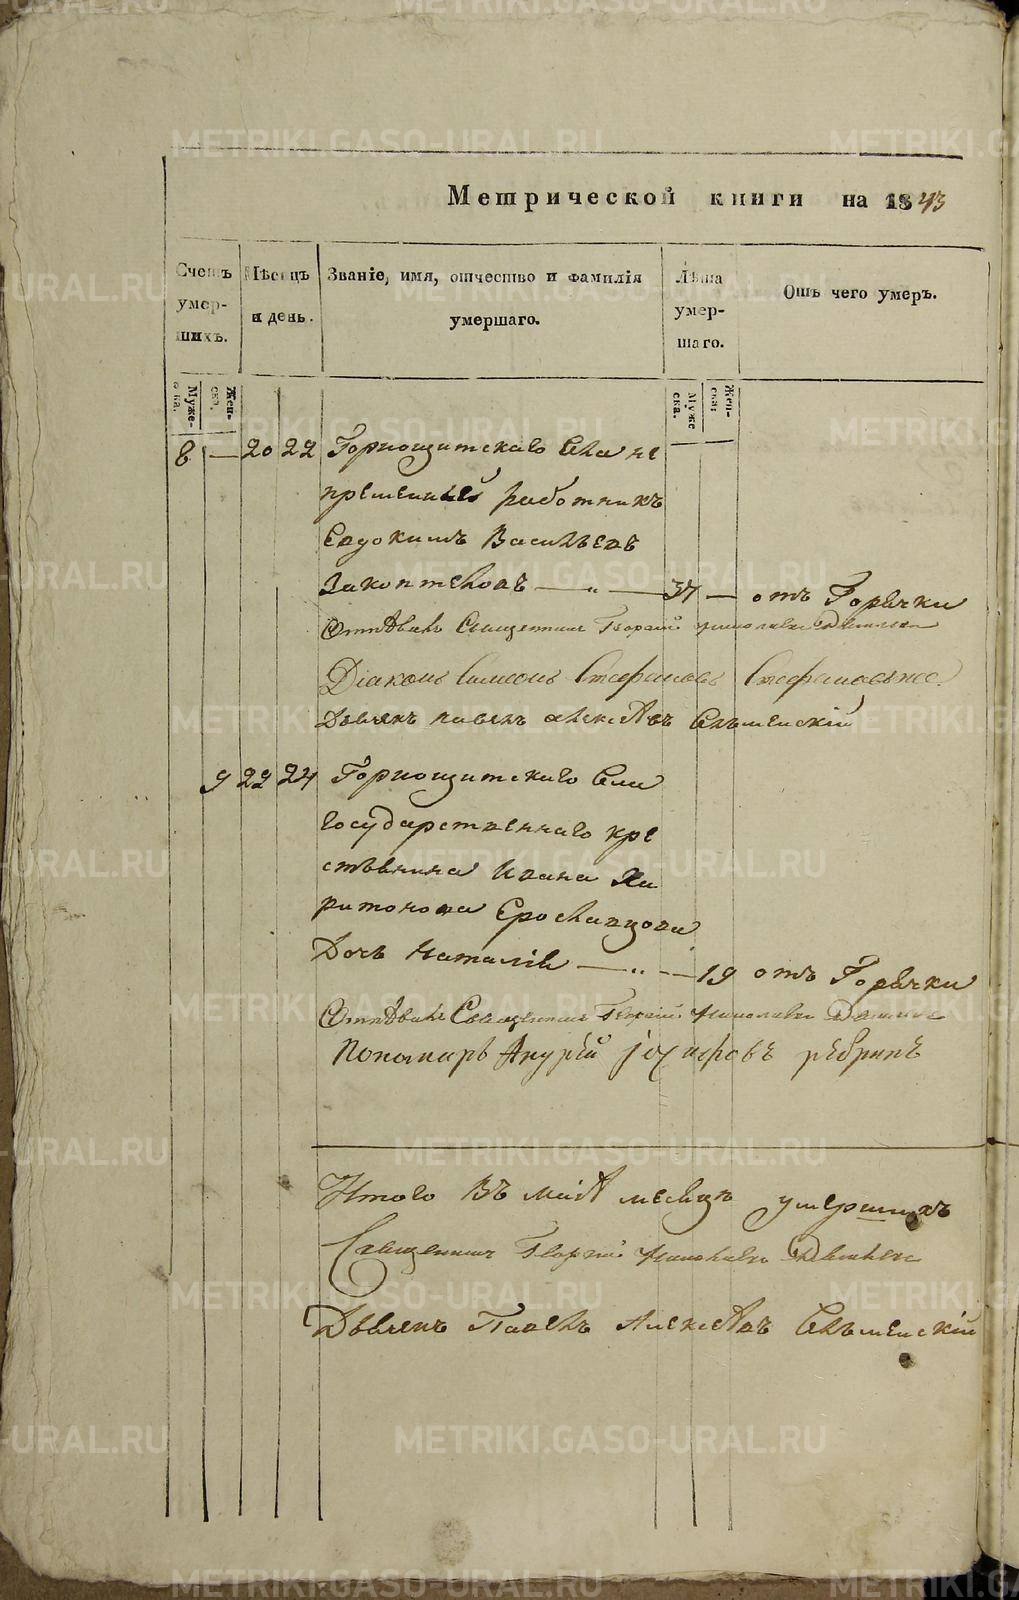 Метрической книги на 1843
Счетъ умер-шихъ.
Мѣсяцъ и день.
Званіе, имя, отчество и фамилія умершаго.
Лѣта умер-шаго.
Отъ чего умеръ.
Муже-ска. Жен-ска. Муже ска. Жен-ска:
8 — 20 22 Горнощитскаго Села не
пременней работникъ
Евдокимъ Васильевъ
Закоптеловъ — „ — 37 — отъ Горячки
Отпѣвалъ Священникъ Георгій Николаевъ
Діаконъ Симеонъ Стефановъ Стефановскій
Дьячекъ павелъ алексѣевъ
9 22 24 Горнощитскаго Села
государственнаго кре
стьянина Ивана Ха
ритонова Ерославцова
Дочь Наталія — „ — 19 отъ Горячки
Отпѣвалъ Священникъ Георгій Николаевъ
Пономарь Андрей Іосифовъ
Итого въ маіѣ месяцѣ умершихъ
Священникъ Георгій Николаевъ
Дьячекъ Павелъ Алексѣевъ
METRIKI.GASO-URAL.RU